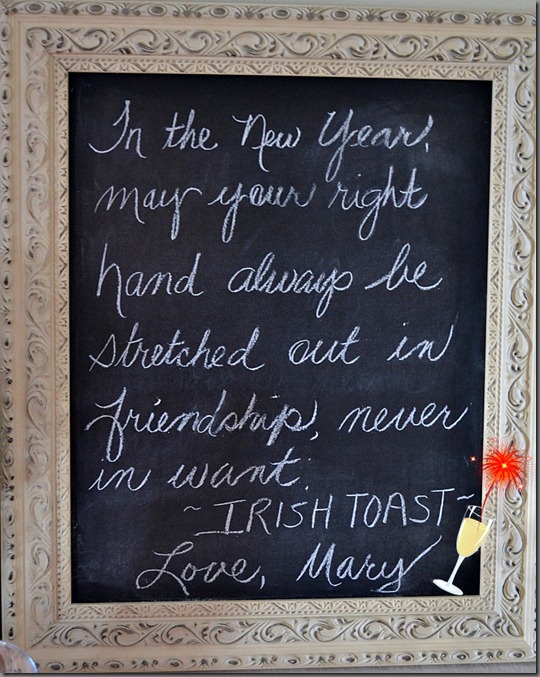 In the New Year,
may your right
hand always be
stretched out in
friendship, never
in want.
~IRISH TOAST~
Love, Mary